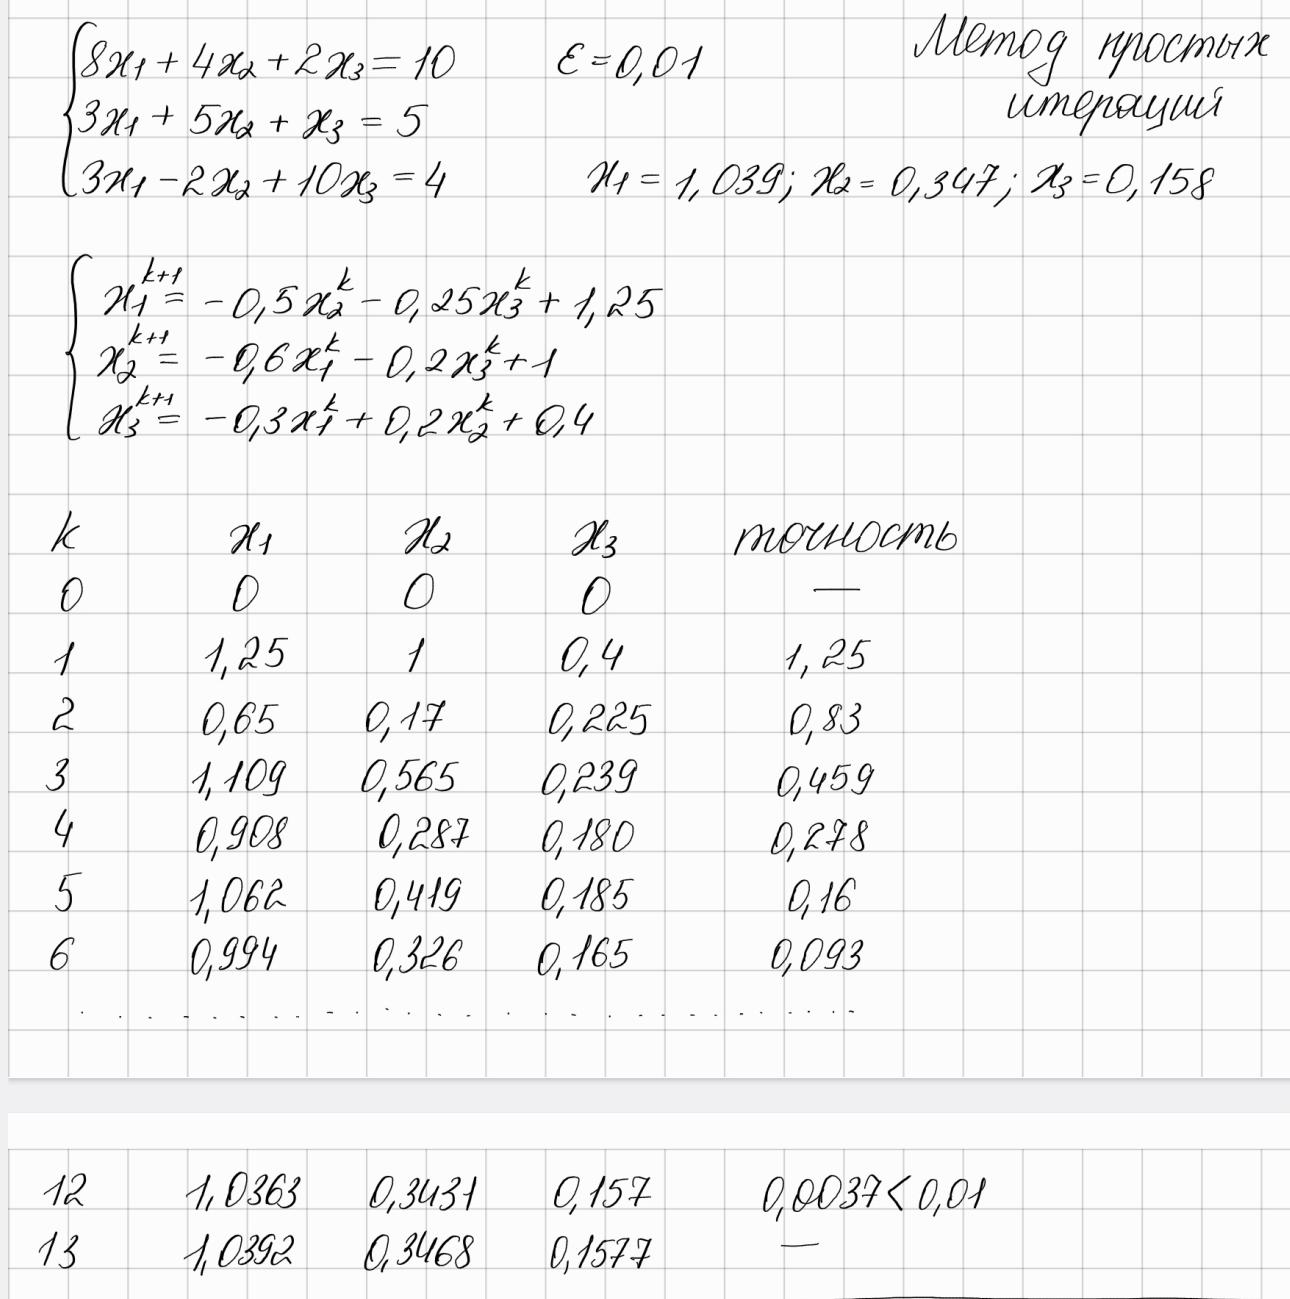 8x₁ + 4x₂ + 2x₃ = 10 ε = 0,01 Метод простых
3x₁ + 5x₂ + x₃ = 5 итераций
3x₁ - 2x₂ + 10x₃ = 4 x₁ = 1,039; x₂ = 0,347; x₃ = 0,158
x₁ᵏ⁺¹ = -0,5x₂ᵏ - 0,25x₃ᵏ + 1,25
x₂ᵏ⁺¹ = -0,6x₁ᵏ - 0,2x₃ᵏ + 1
x₃ᵏ⁺¹ = -0,3x₁ᵏ + 0,2x₂ᵏ + 0,4
k x₁ x₂ x₃ точность
0 0 0 0 —
1 1,25 1 0,4 1,25
2 0,65 0,17 0,225 0,83
3 1,109 0,565 0,239 0,459
4 0,908 0,287 0,180 0,278
5 1,062 0,419 0,185 0,16
6 0,994 0,326 0,165 0,093
. . . . . . . . . . . . . . . . . . . . . . . .
12 1,0363 0,3431 0,157 0,0037 < 0,01
13 1,0392 0,3468 0,1577 —